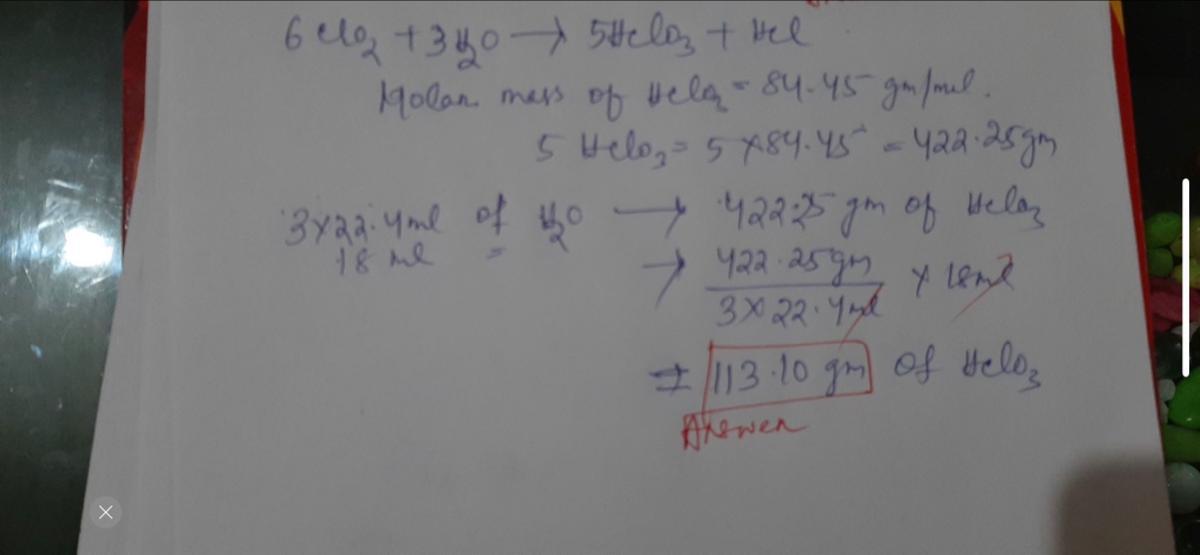 6ClO₂ + 3H₂O → 5HClO₃ + HCl
Molar mass of HClO₃ = 84.45 gm/mol.
5 HClO₃ = 5×84.45 = 422.25 gm
3×22.4ml of H₂O → 422.25 gm of HClO₃
18 ml = → 422.25gm / 3×22.4ml × 18ml
= 113.10 gm of HClO₃
Answer